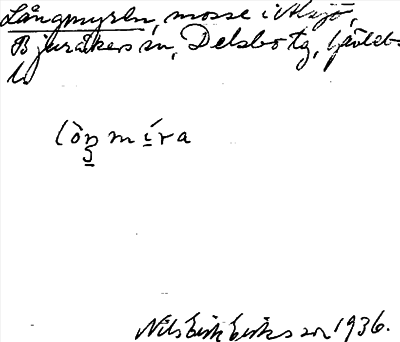 Långmyren, mosse i Alsjö,
Bjuråkers sn, Delsbo tg, Gävlebs
l.
lòŋmíra
Nils Erik Eriksson 1936.